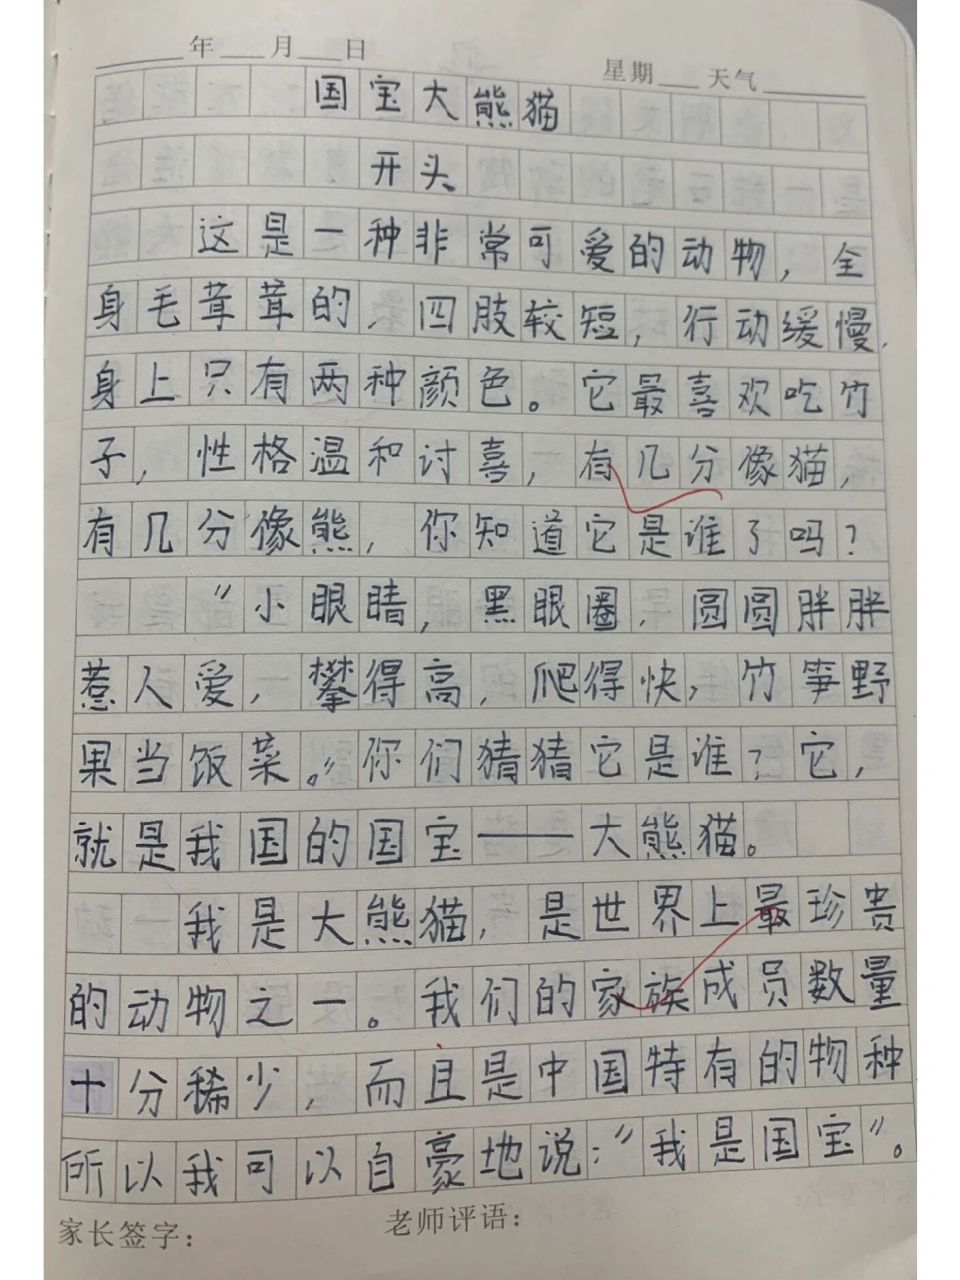 年 月 日
星期 天气
国宝大熊猫
开头
这是一种非常可爱的动物，全
身毛茸茸的，四肢较短，行动缓慢，
身上只有两种颜色。它最喜欢吃竹
子，性格温和讨喜，有几分像猫，
有几分像熊，你知道它是谁了吗？
“小眼睛，黑眼圈，圆圆胖胖
惹人爱，攀得高，爬得快，竹笋野
果当饭菜。”你们猜猜它是谁？它，
就是我国的国宝——大熊猫。
我是大熊猫，是世界上最珍贵
的动物之一。我们的家族成员数量
十分稀少，而且是中国特有的物种
所以我可以自豪地说：“我是国宝”。
家长签字：
老师评语：